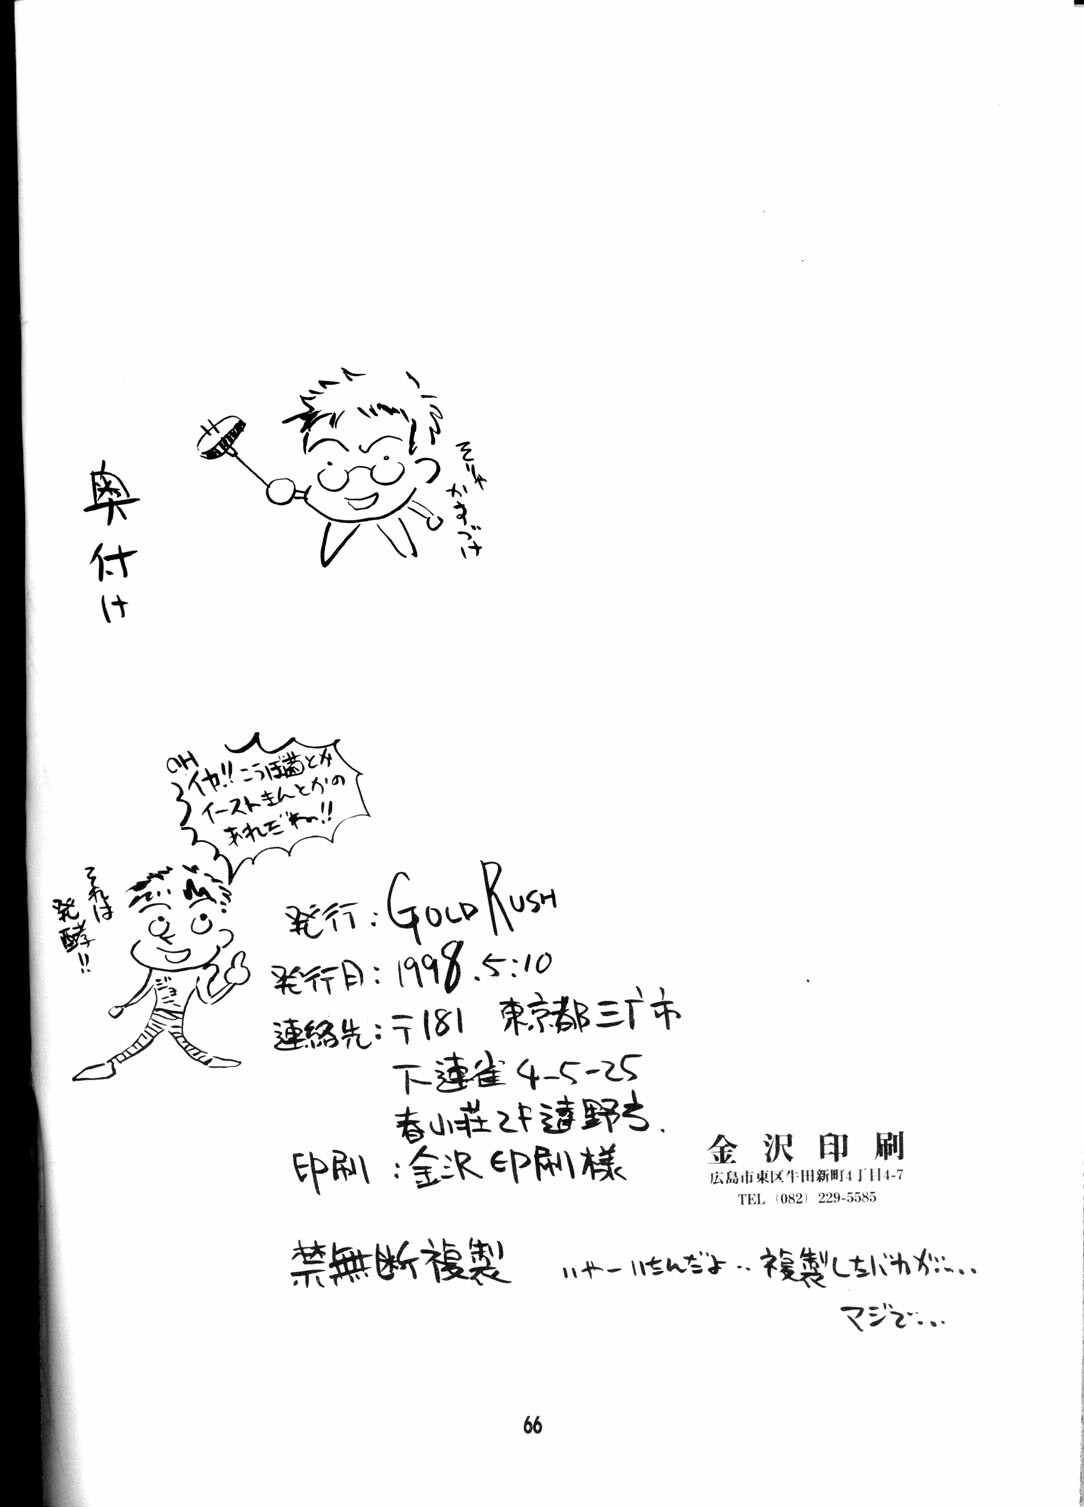 奥付け
そりゃ
かすづけ
OH
イヤ!!こうぼ菌とか
イーストきんとかの
あれだねっ!!
それは
発酵!!
ジョ
発行:GOLD RUSH
発行日:1998.5.10
連絡先:〒181 東京都三广市
下連雀4-5-25
春山荘2F遠野方.
印刷:金沢印刷様
金沢印刷
広島市東区牛田新町4丁目4-7
TEL (082) 229-5585
禁無断複製
いやーいたんだよ‥複製したバカが…..
マジで…
66